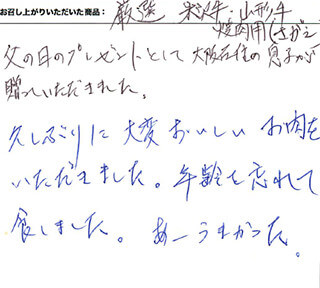 お召し上がりいただいた商品： 厳選 米沢牛・山形牛
焼肉用
父の日のプレゼントとして大阪在住の息子が
贈っていただきました。
久しぶりに大変おいしいお肉を
いただきました。年齢を忘れて
食しました。あーうまかった。